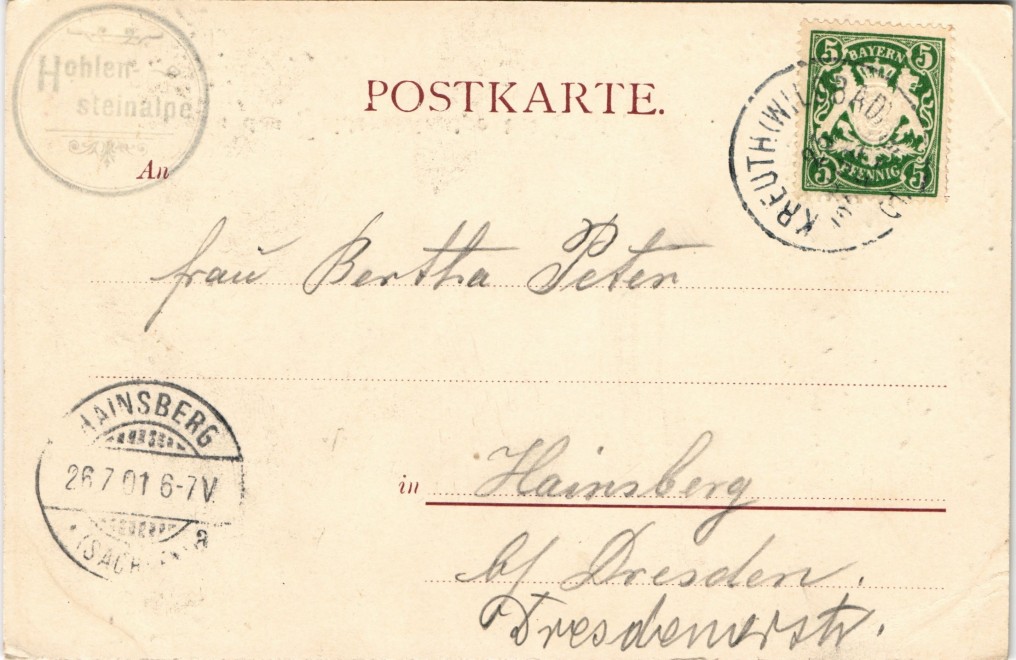 Hohlen-
steinalpe
POSTKARTE.
5 BAYERN 5
5 PFENNIG 5
KREUTH (WILDBAD)
An
frau Bertha Peter
HAINSBERG
26.7.01 6-7V.
a
(SACHSEN)
in Hainsberg
b/ Dresden.
Dresdenerstr.